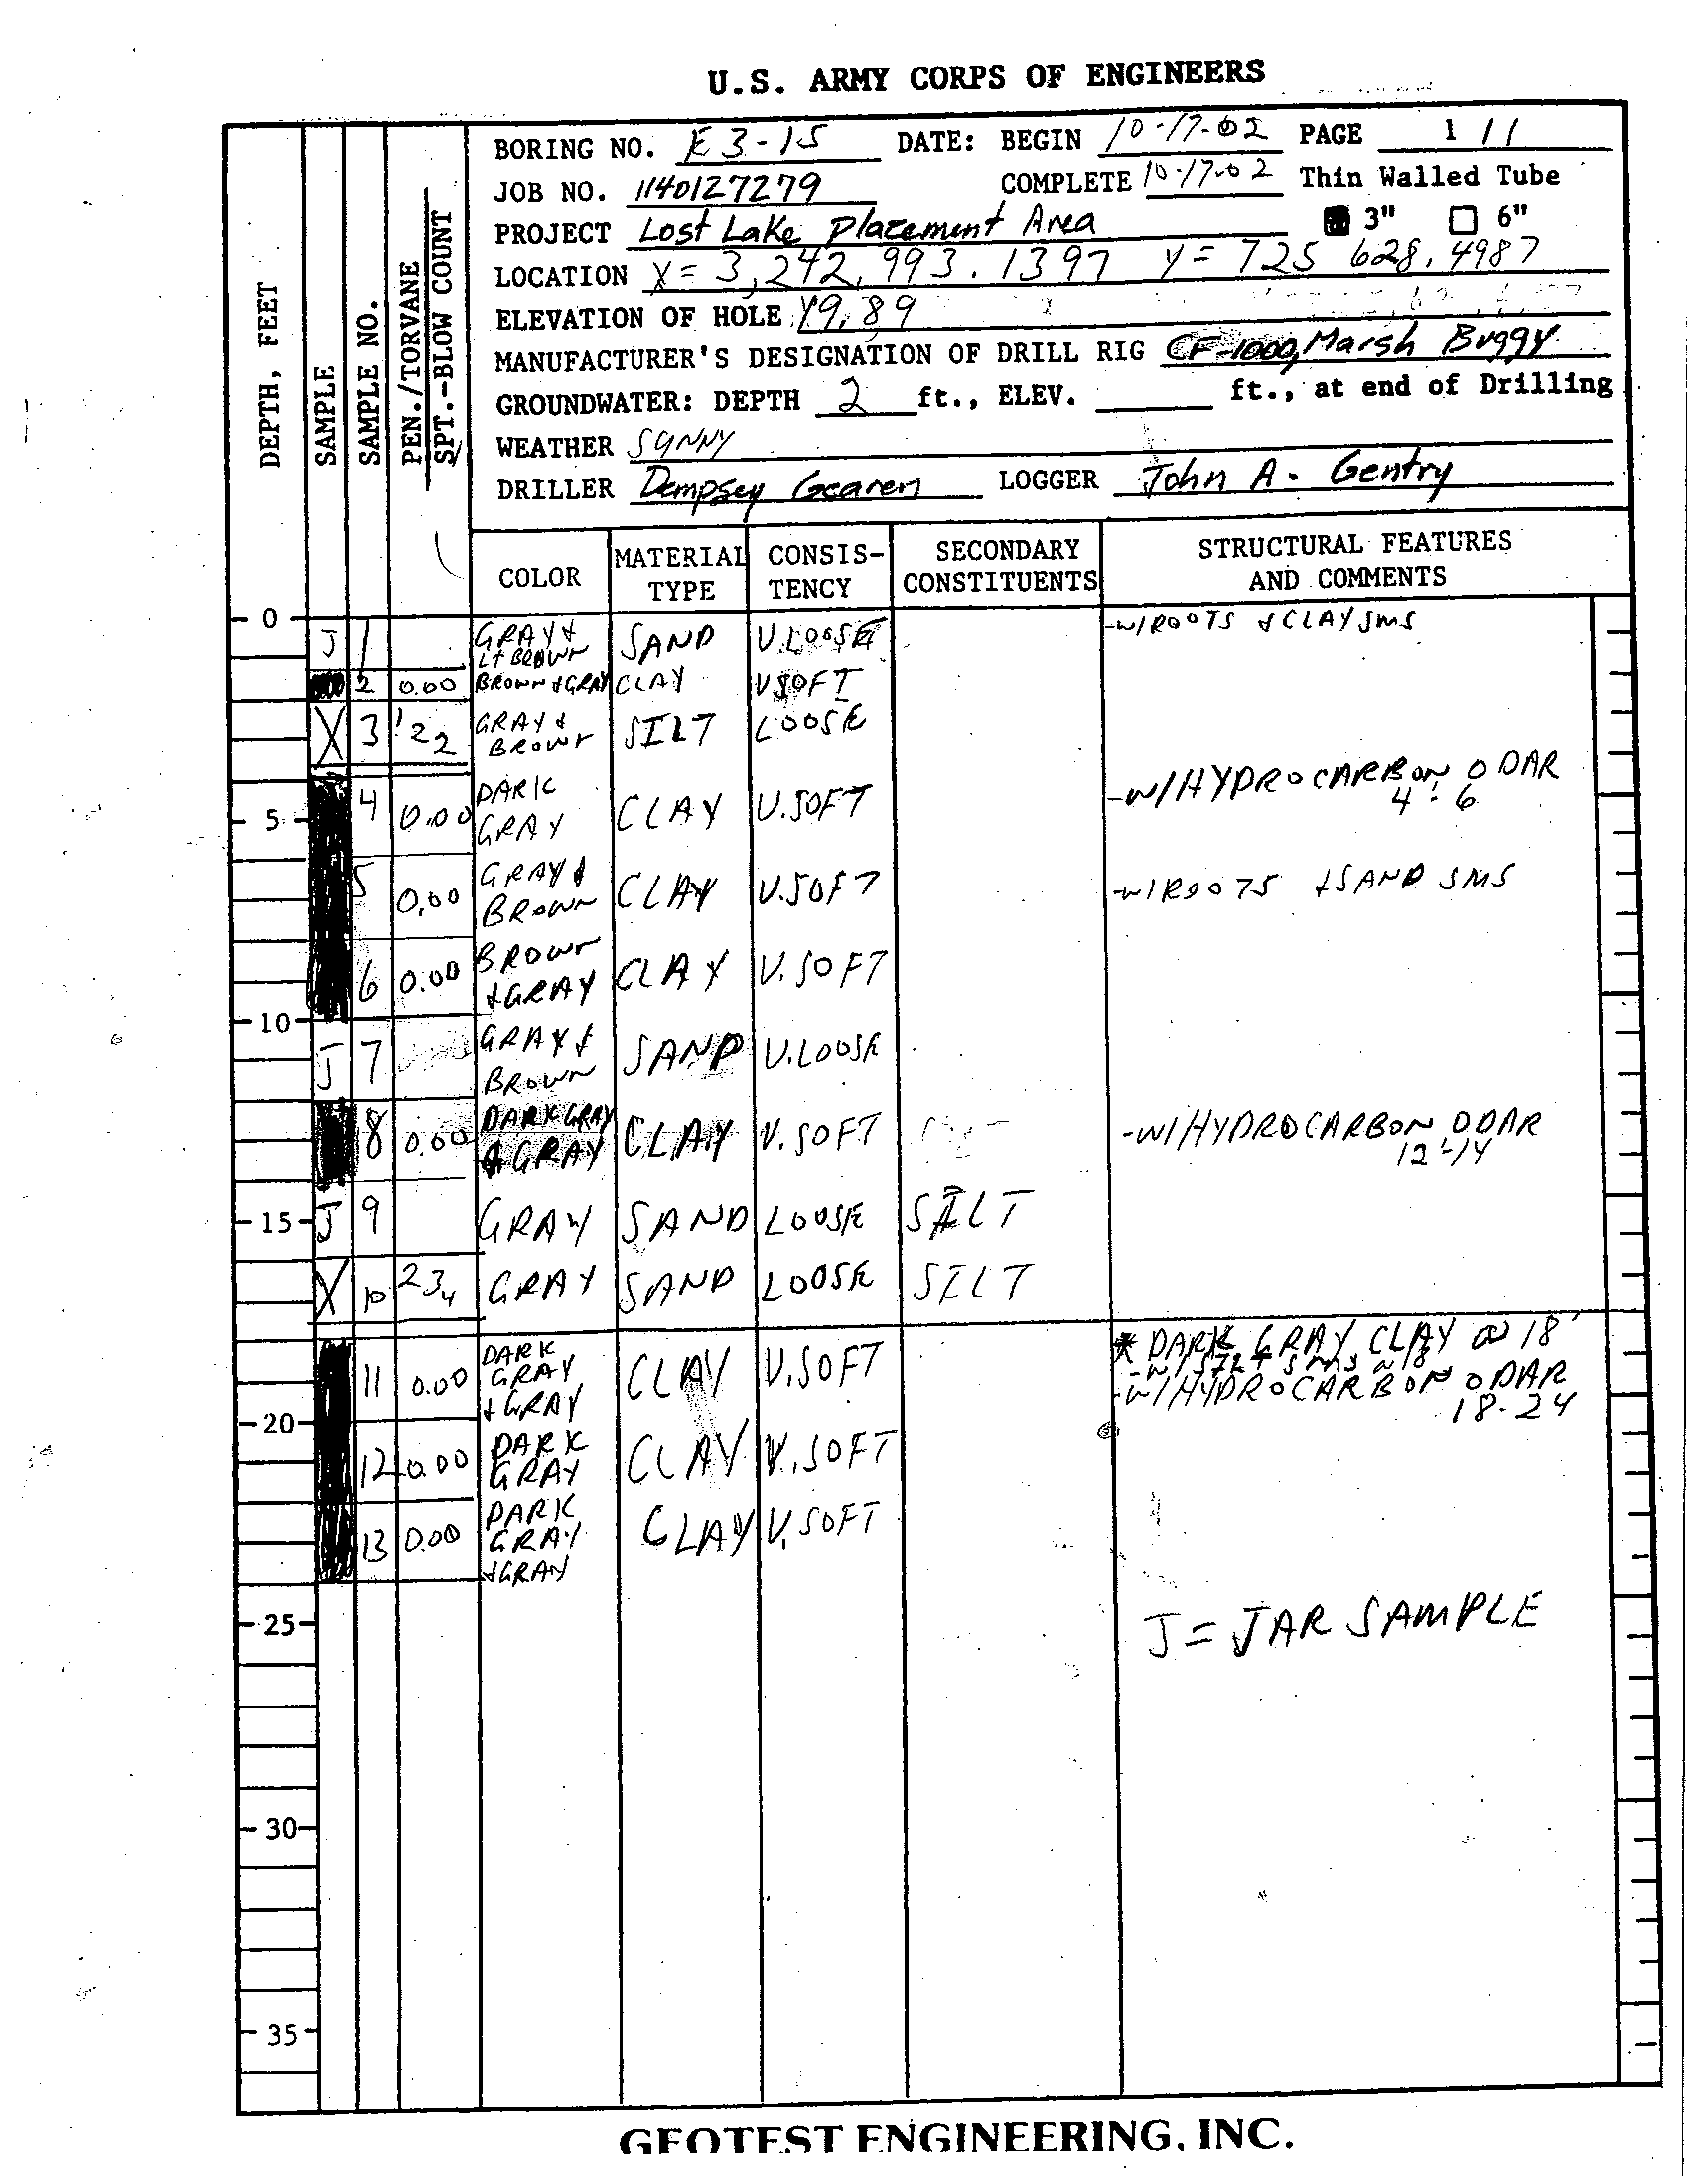 U.S. ARMY CORPS OF ENGINEERS
DEPTH, FEET
SAMPLE
SAMPLE NO.
PEN./TORVANE
SPT.-BLOW COUNT
BORING NO. E3-15 DATE: BEGIN 10-17-02 PAGE 1 / 1
JOB NO. 1140127279 COMPLETE 10-17-02 Thin Walled Tube
PROJECT Lost Lake Placement Area 3" 6"
LOCATION X= 3,242,993.1397 Y= 725 628.4987
ELEVATION OF HOLE 9.89
MANUFACTURER'S DESIGNATION OF DRILL RIG CF-1000, Marsh Buggy
GROUNDWATER: DEPTH 2 ft., ELEV. ft., at end of Drilling
WEATHER SUNNY
DRILLER Dempsey LOGGER John A. Gentry
COLOR MATERIAL TYPE CONSIS-TENCY SECONDARY CONSTITUENTS STRUCTURAL FEATURES AND COMMENTS
0
J 1 GRAY & LT BROWN SAND V.LOOSE -W/ROOTS & CLAY SMS
2 0.00 BROWN & GRAY CLAY V SOFT
X 3 1 2 2 GRAY & BROWN SILT LOOSE
4 0.00 DARK GRAY CLAY V.SOFT -W/HYDROCARBON ODAR 4'-6
5
5 0.00 GRAY & BROWN CLAY V.SOFT -W/ROOTS & SAND SMS
6 0.00 BROWN & GRAY CLAY V.SOFT
10
J 7 GRAY & BROWN SAND V.LOOSE
8 0.00 DARK GRAY & GRAY CLAY V.SOFT -W/HYDROCARBON ODAR 12'-14
15 J 9 GRAY SAND LOOSE SILT
X 10 2 3 4 GRAY SAND LOOSE SILT
11 0.00 DARK GRAY & GRAY CLAY V.SOFT * DARK GRAY CLAY @ 18'
-W/SILT SMS @ 18
-W/HYDROCARBON ODAR
18-24
20
12 0.00 DARK GRAY CLAY V.SOFT
13 0.00 DARK GRAY & GRAY CLAY V.SOFT
25
J = JAR SAMPLE
30
35
GEOTEST ENGINEERING, INC.